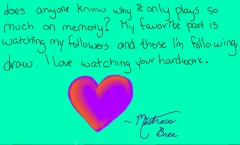 does anyone know why it only plays so
much on memory? My favorite part is
watching my followers and those I'm following,
draw. I love watching your hardwork.
~ Mistress
Bree